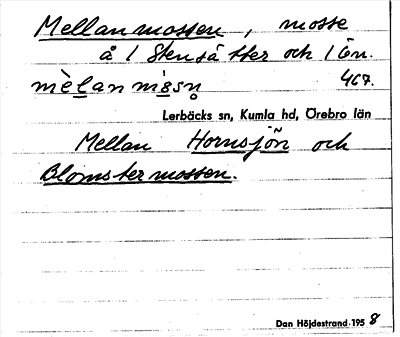 Mellanmossen, mosse
å 1 Stensätter och 1 Ön.
mèlan mòsn̥ 467.
Lerbäcks sn, Kumla hd, Örebro län
Mellan Hornsjön och
Blomstermossen.
Dan Höjdestrand 1958